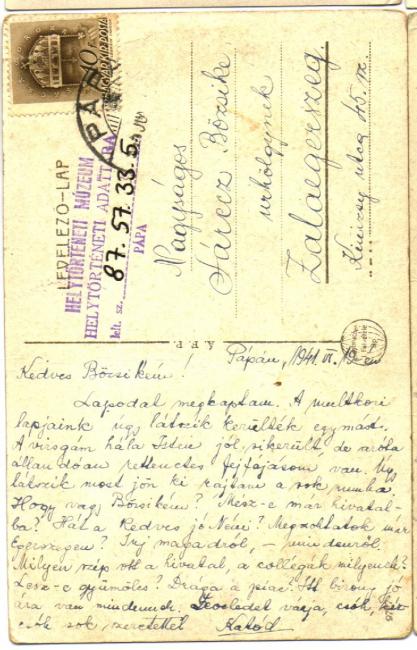 LEVELEZŐ-LAP
HELYTÖRTÉNETI MÚZEUM
HELYTÖRTÉNETI ADATTÁRA
lelt. sz. 87.57.33.5
PÁPA
PÁPA
Nagyságos
Sárecz Bözsike
úrhölgynek
Zalaegerszeg
utca 45. sz.
Pápán, 1941. VI. 19-én
Kedves Bözsikém!
Lapodat megkaptam. A multkori
lapjaink úgy látszik kerülték egymást.
A vizsgám hála Istén jól sikerült, de azóta
állandóan rettenetes fejfájásom van. Úgy
látszik most jön ki rajtam a sok munka.
Hogy vagy Bözsikém? Mész-e már hivatal-
ba? Hát a Kedves jó Néni? Megszoktátok már
Egerszegen? Írj magadról, – mindenről.
Milyen a hivatal, a collegák milyenek?
Lesz-e gyümölcs? Drága a piac? Itt bizony jó
ára van mindennek. Leveledet várja, csók,
csók sok szeretettel Katód